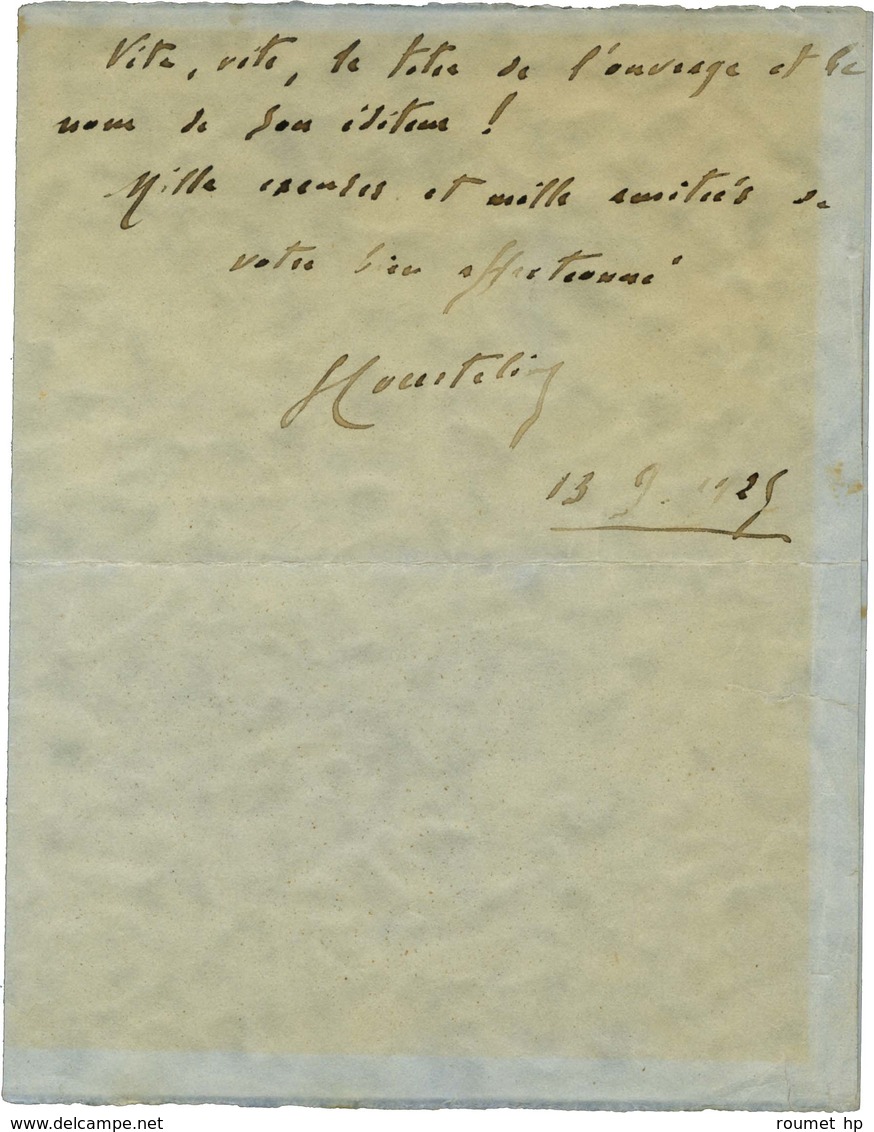 Vite, vite, le titre de l'ouvrage et le
nom de son éditeur !
Mille excuses et mille amitiés de
votre bien affectionné
13 9. 1925
delcampe.net
roumet hp